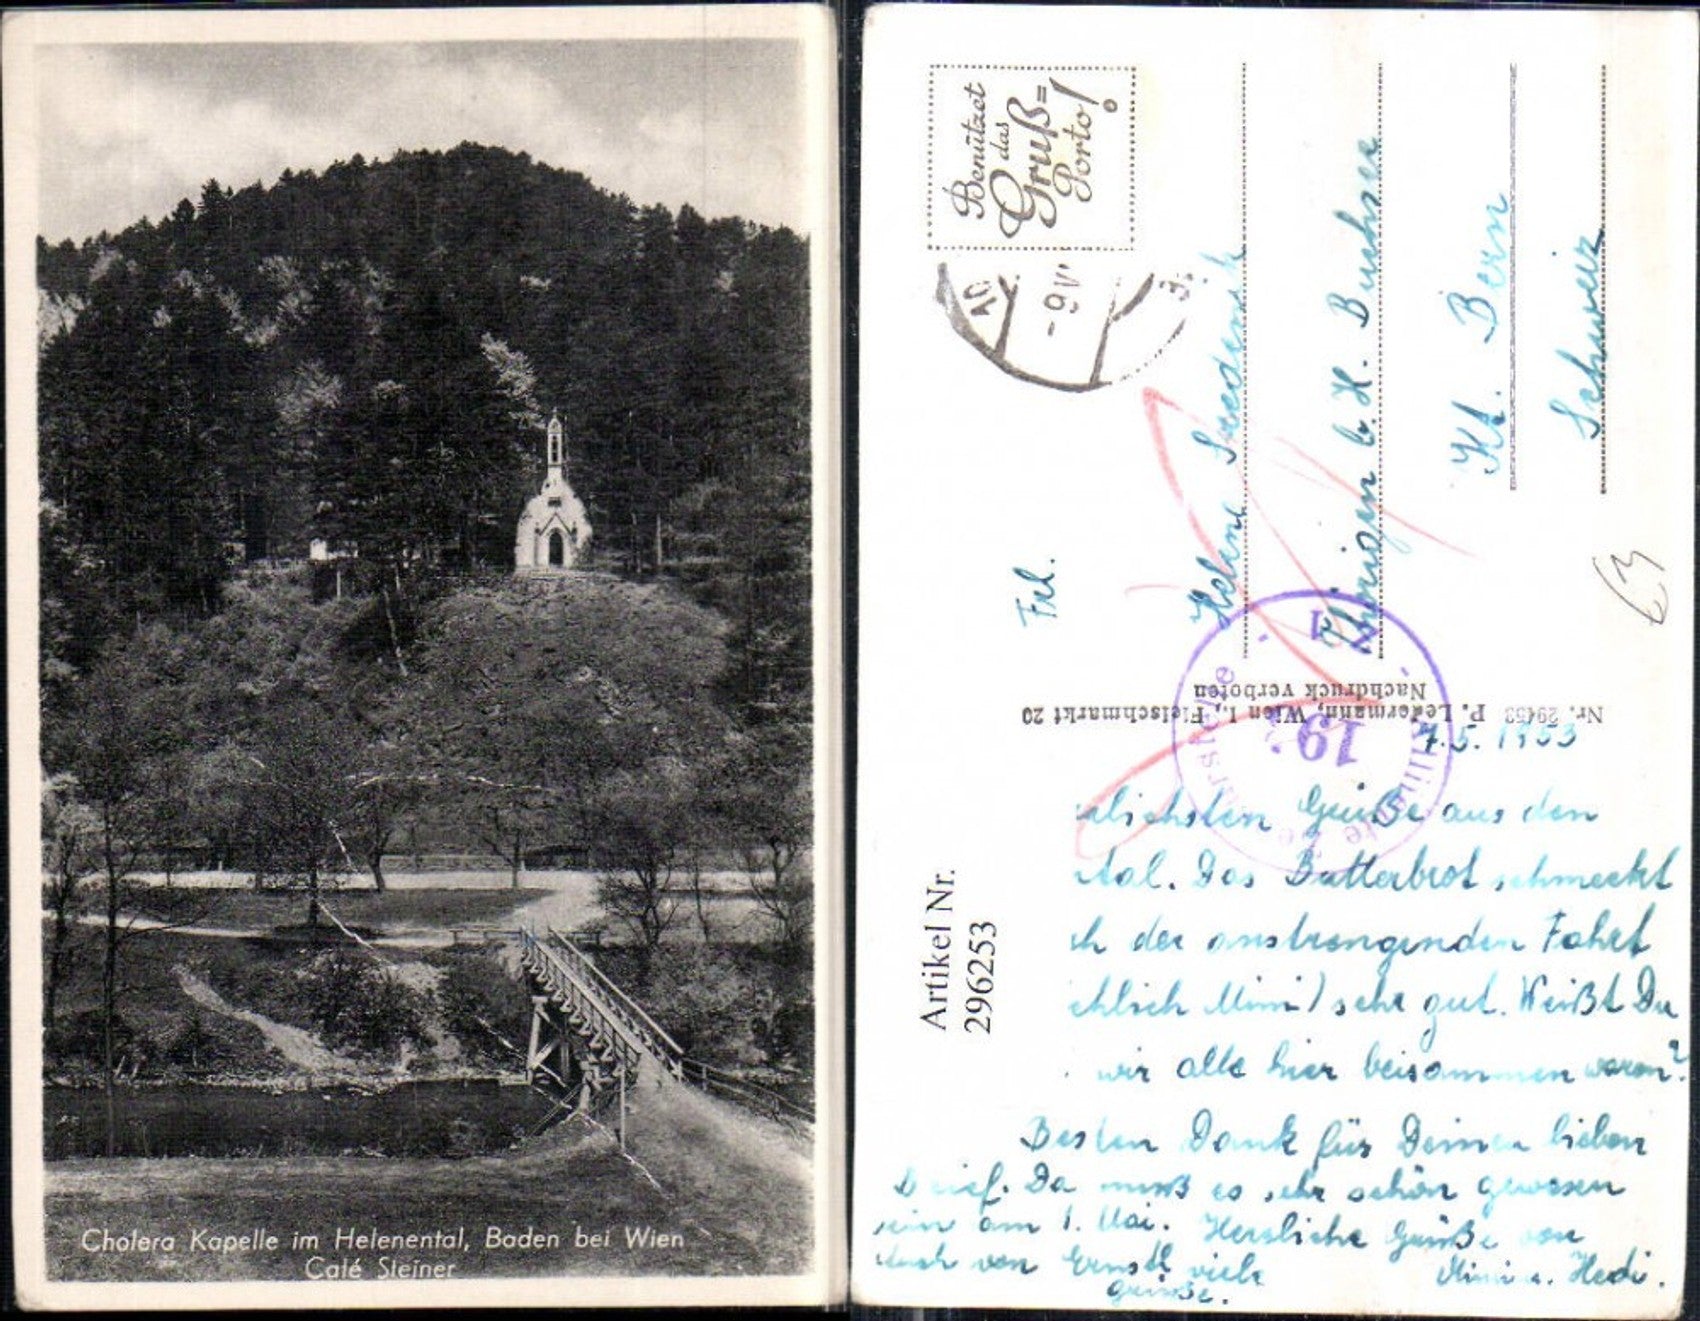 Cholera Kapelle im Helenental, Baden bei Wien
Café Steiner
Benützet
das
Gruß=
Porto!
-9.V
Frl.
Helene
Thörigen b. H. Buchsee
Kt. Bern
Schweiz
63
Nr. 29453 P. Ledermann, Wien I., Fleischmarkt 20
Nachdruck verboten
19
Artikel Nr.
296253
7.5.1953
lichsten Grüße aus den
tal. Das Butterbrot schmeckt
ch der anstrengenden Fahrt
chlich Mimi) sehr gut. Weißt Du
wir alle hier beisammen waren?
Besten Dank für Deinen lieben
Brief. Da muß es sehr schön gewesen
sein am 1. Mai. Herzliche Grüße von
Auch von Ernstl viele Mimi u. Hedi.
Grüße.